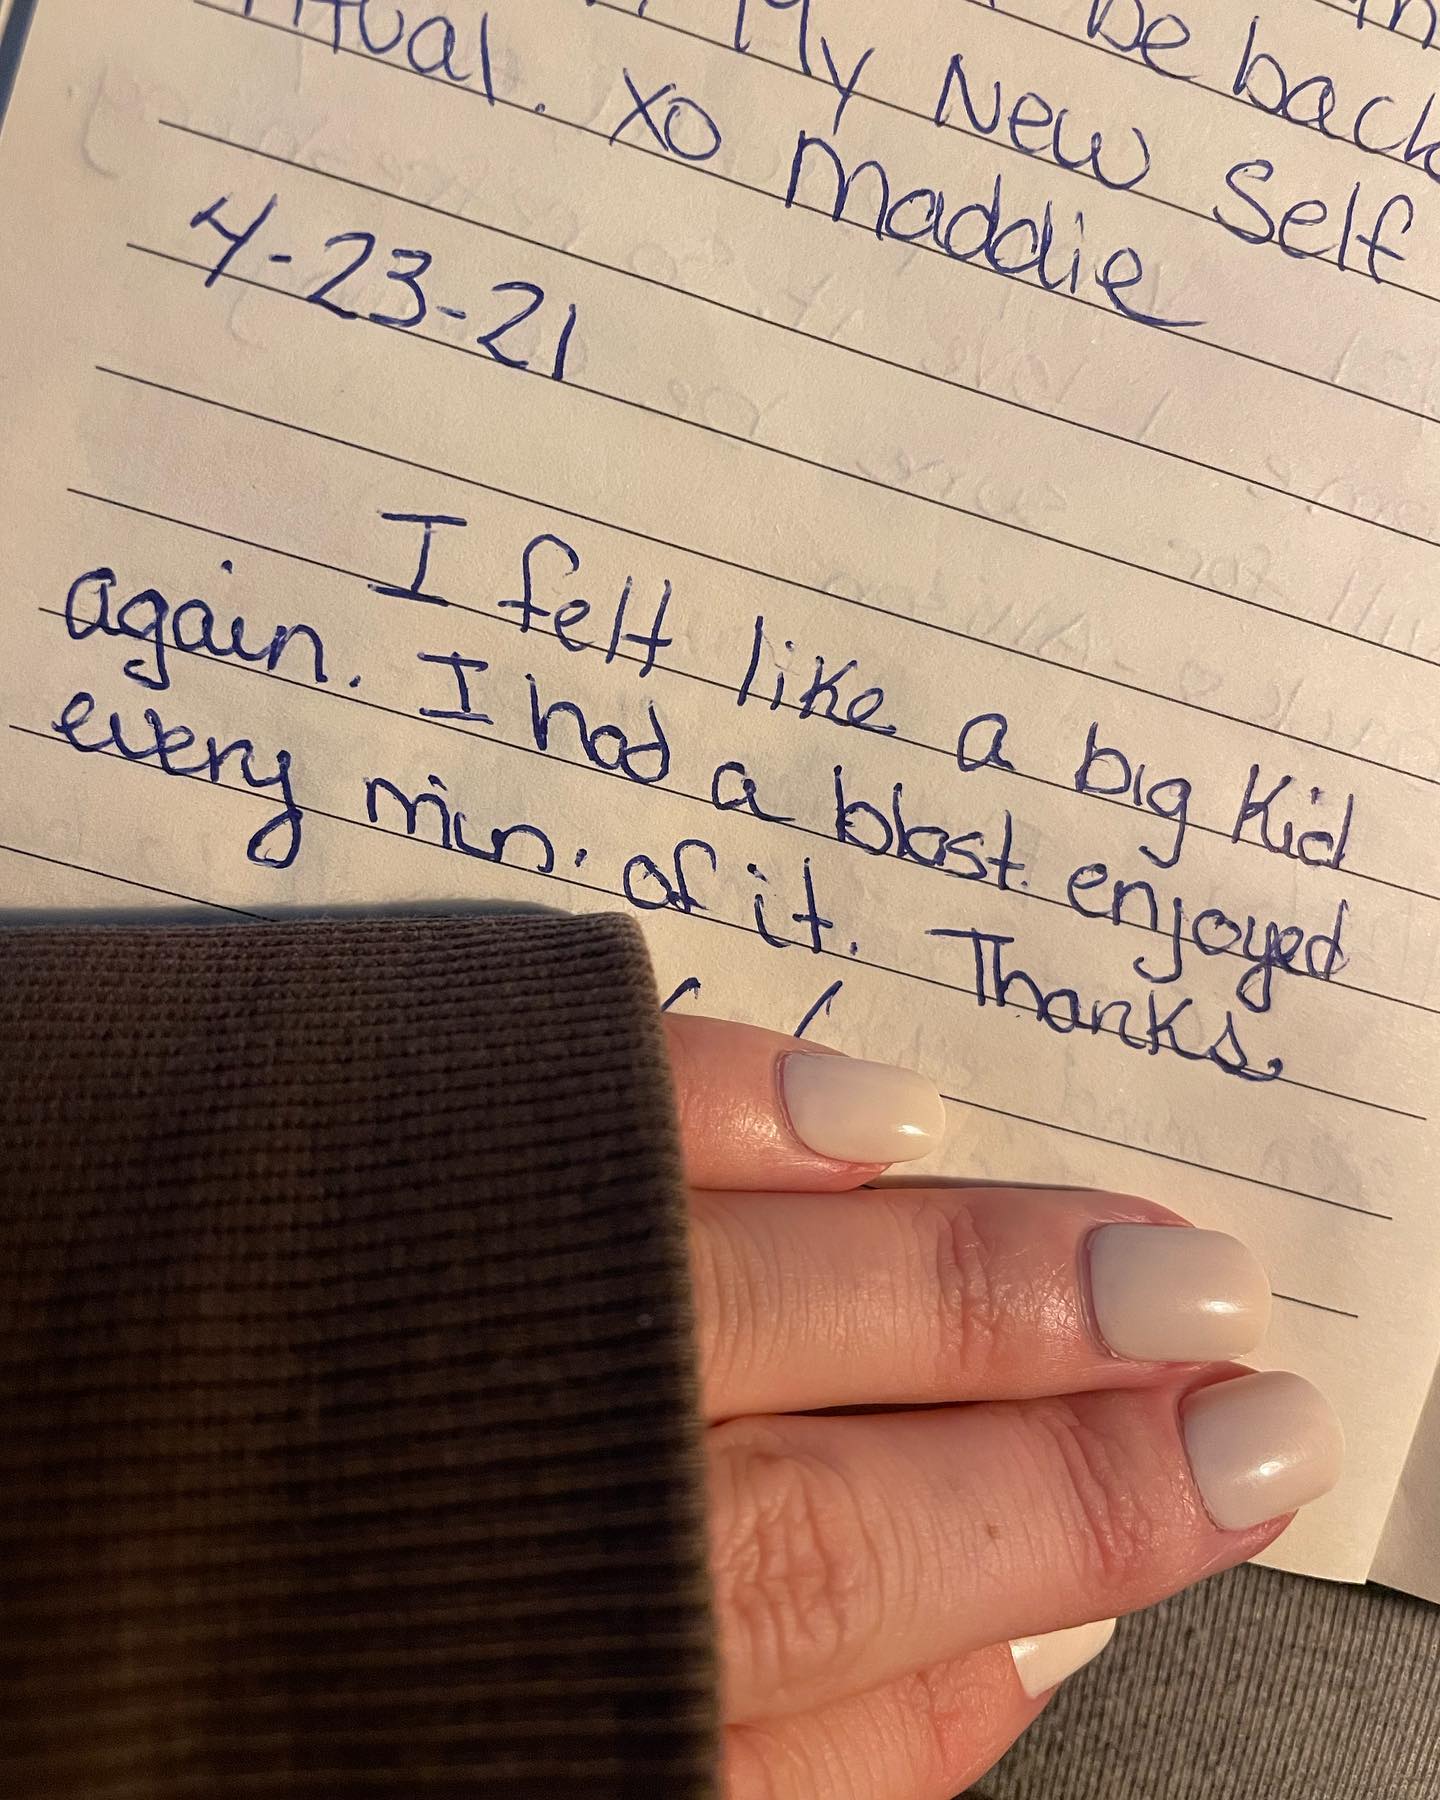 be back
My New Self
xo Maddie
4-23-21
I felt like a big Kid
again. I had a blast enjoyed
every min. of it. Thanks.